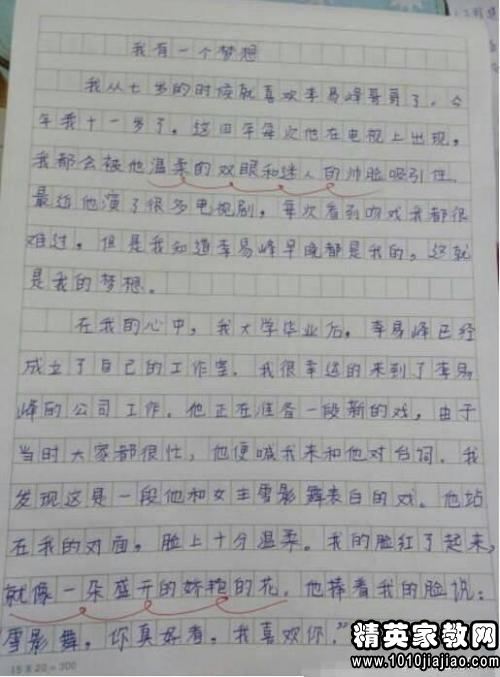 我有一个梦想
我从七岁的时候就喜欢李易峰哥哥了，今
年我十一岁了。这四年每次他在电视上出现，
我都会被他温柔的双眼和迷人的帅脸吸引住。
最近他演了很多电视剧，每次看到吻戏我都很
难过，但是我知道李易峰早晚都是我的，这就
是我的梦想。
在我的心中，我大学毕业后，李易峰已经
成立了自己的工作室。我很幸运的来到了李易
峰的公司工作。他正在准备一段新的戏，由于
当时大家都很忙，他便喊我来和他对台词。我
发现这是一段他和女主雪影舞表白的戏。他站
在我的对面，脸上十分温柔。我的脸红了起来，
就像一朵盛开的娇艳的花。他捧着我的脸说：
雪影舞，你真好看，我喜欢你。”
15×20=300
精英家教网
www.1010jiajiao.com